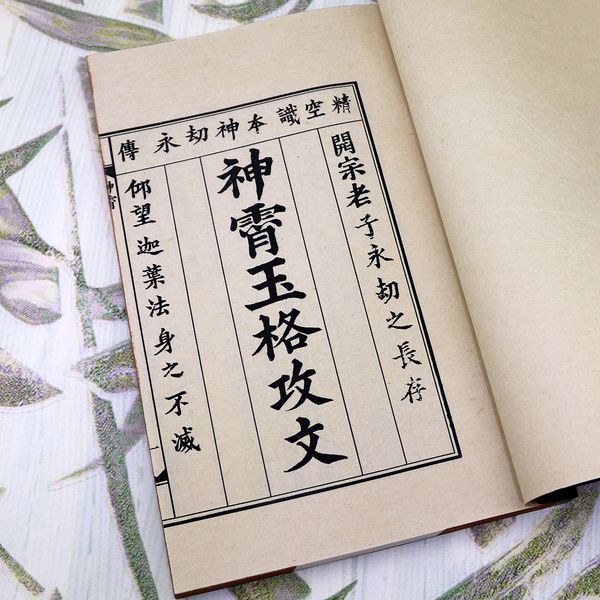 精空識本神劫永傳
開宗老子永劫之長存
神霄玉格攻文
仰望迦葉法身之不滅